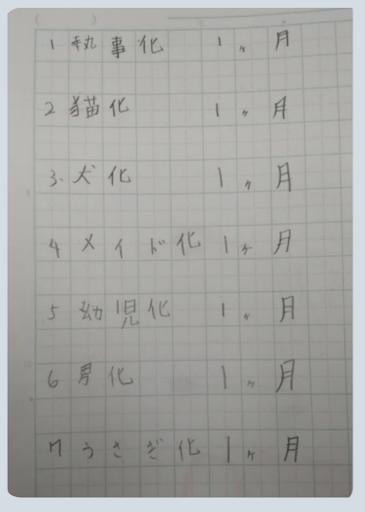 1 執事化 1ヶ月
2 猫化 1ヶ月
3. 犬化 1ヶ月
4 メイド化 1ヶ月
5 幼児化 1ヶ月
6 男化 1ヶ月
7 うさぎ化 1ヶ月